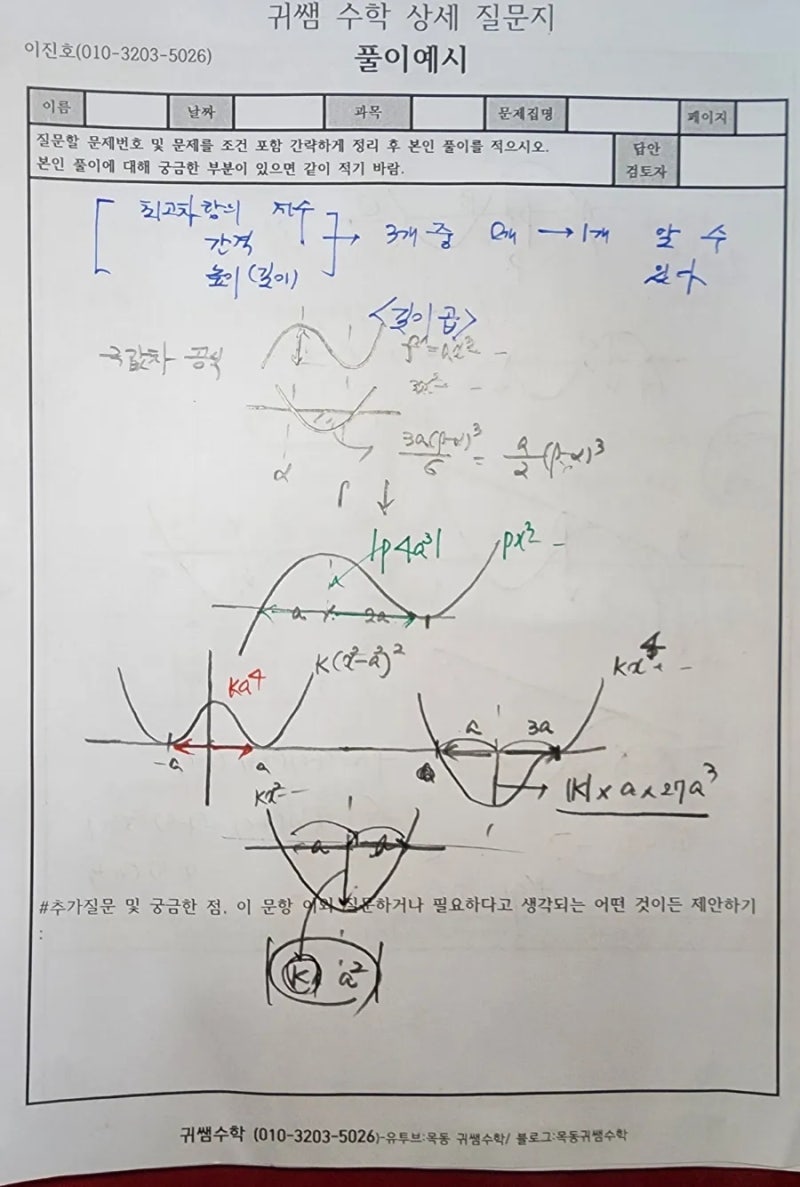 귀쌤 수학 상세 질문지
이진호(010-3203-5026)
풀이예시
이름 날짜 과목 문제집명 페이지
질문할 문제번호 및 문제를 조건 포함 간략하게 정리 후 본인 풀이를 적으시오.
본인 풀이에 대해 궁금한 부분이 있으면 같이 적기 바람.
답안
검토자
최고차항의 계수
간격
높이(길이)
→ 3개 중 2개 → 1개 알 수
있다
<길이 곱>
극값차 공식
3a(β-α)³/6 = a/2(β-α)³
α
|p4a³|
px³ -
a 2a
ka⁴
k(x²-a²)²
-a a
kx⁴ -
a 3a
|k| × a × 27a³
kx² --
a a
#추가질문 및 궁금한 점, 이 문항 이외 질문하거나 필요하다고 생각되는 어떤 것이든 제안하기
:
|k a²|
귀쌤수학 (010-3203-5026)-유투브:목동 귀쌤수학/ 블로그:목동귀쌤수학